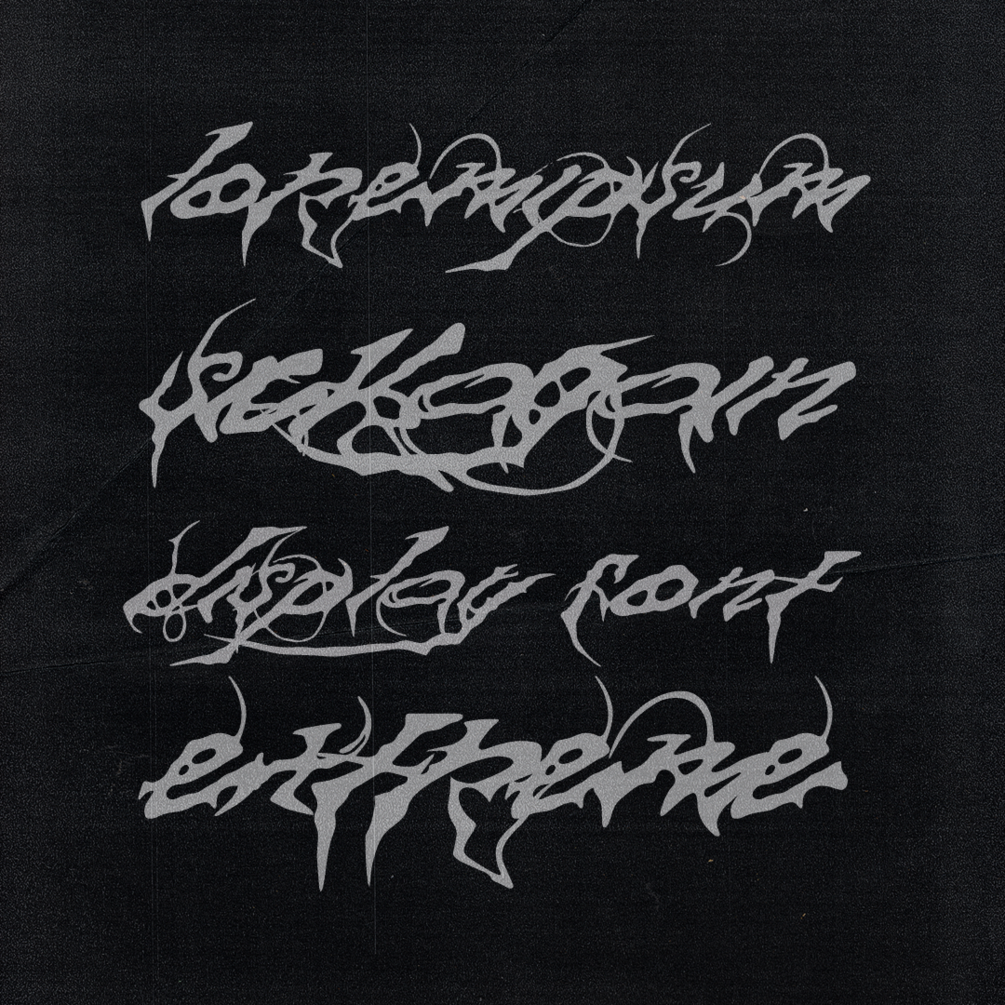 loremipsum
display font
extreme